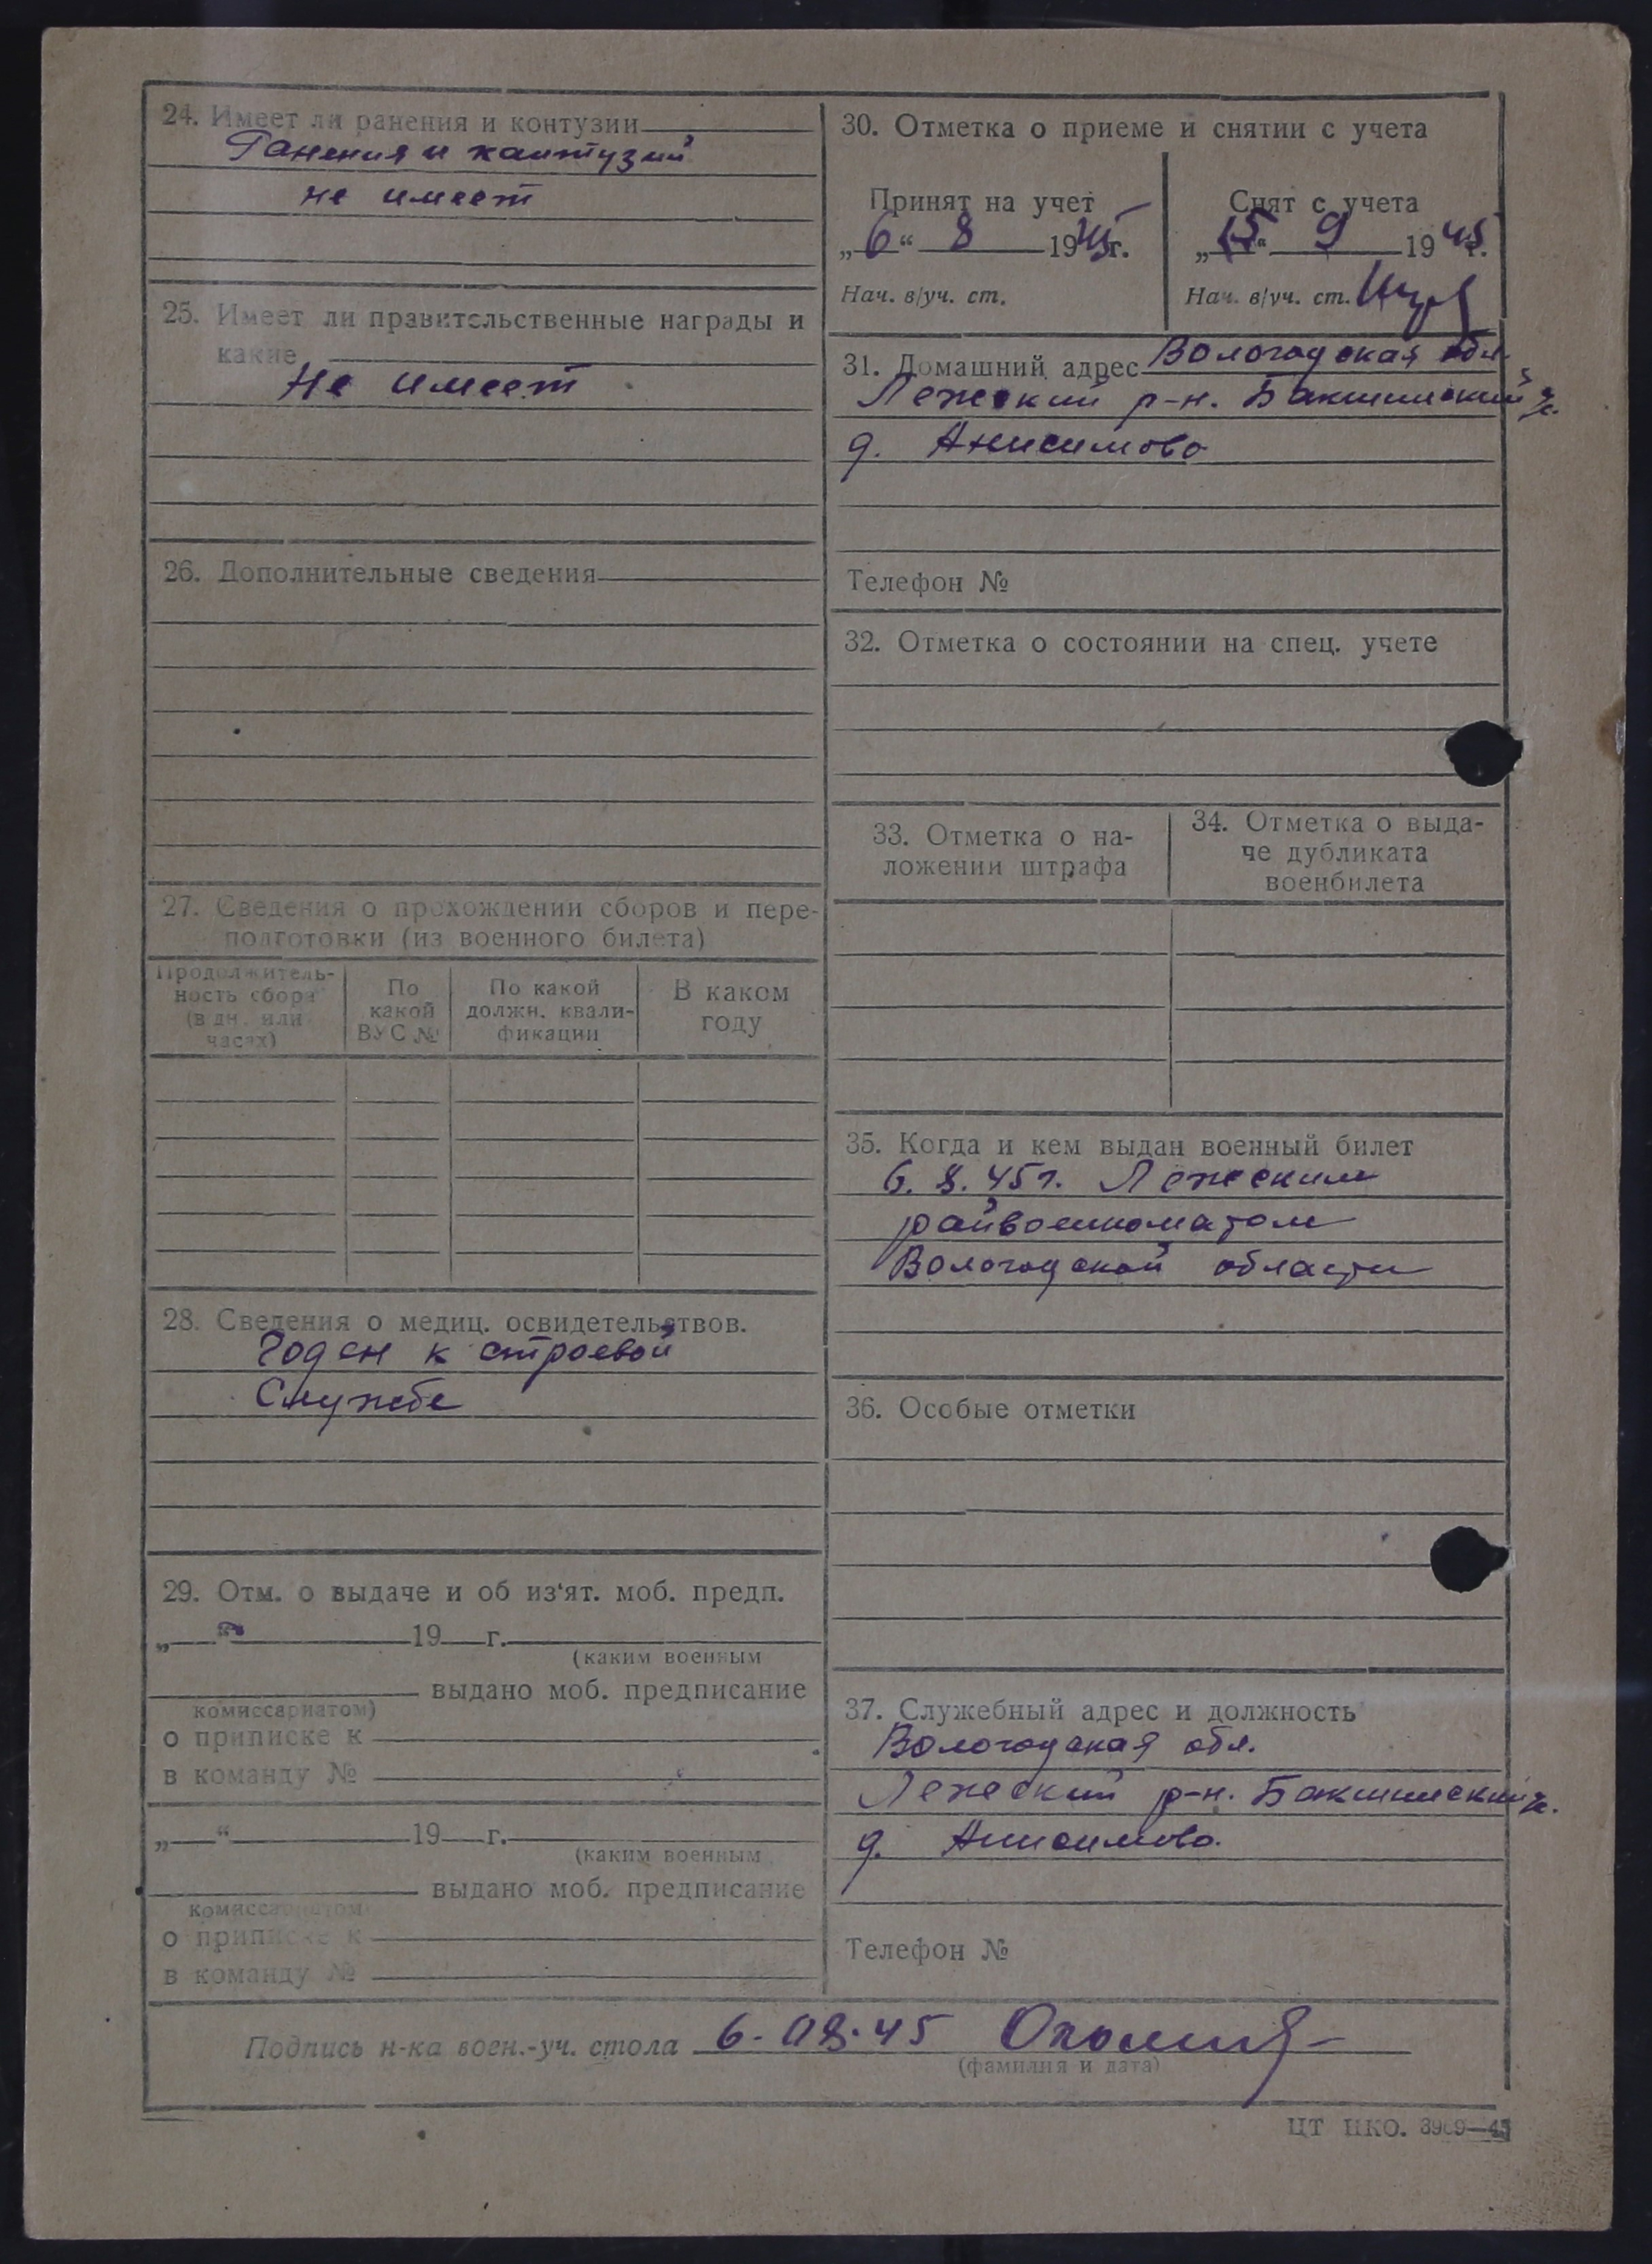 24. Имеет ли ранения и контузии
Ранения и кантузий
не имеет
25. Имеет ли правительственные награды и
какие
Не имеет
26. Дополнительные сведения
27. Сведения о прохождении сборов и пере-
подготовки (из военного билета)
Продолжитель-
ность сбора
(в дн. или
часах)
По
какой
ВУС №
По какой
должн. квали-
фикации
В каком
году
28. Сведения о медиц. освидетельствов.
Годен к строевой
Службе
29. Отм. о выдаче и об из'ят. моб. предп.
„ “ 19 г.
(каким военным
выдано моб. предписание
комиссариатом)
о приписке к
в команду №
„ “ 19 г.
(каким военным
выдано моб. предписание
комиссариатом
о приписке к
в команду №
30. Отметка о приеме и снятии с учета
Принят на учет
„6“ 8 1945г.
Нач. в/уч. ст.
Снят с учета
„15“ 9 1945г.
Нач. в/уч. ст.
31. Домашний адрес Вологодская обл.
Лежский р-н. Бакшинский
д. Анисимово
Телефон №
32. Отметка о состоянии на спец. учете
33. Отметка о на-
ложении штрафа
34. Отметка о выда-
че дубликата
военбилета
35. Когда и кем выдан военный билет
6. 8. 45г. Лежским
райвоенкоматом
Вологодской области
36. Особые отметки
37. Служебный адрес и должность
Вологодская обл.
Лежский р-н. Бакшинский
д. Анисимово.
Телефон №
Подпись н-ка воен.-уч. стола 6-08-45
(фамилия и дата)
ЦТ НКО. 3969—45